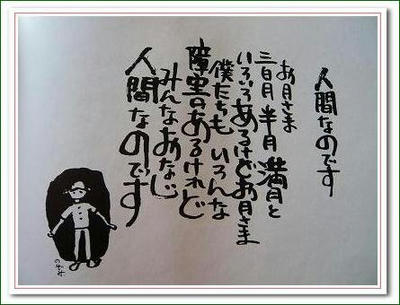 人間なのです
お月さま
三日月 半月 満月と
いろいろあるけどお月さま
僕たちも いろんな
障害のあるけれど
みんなおなじ
人間なのです